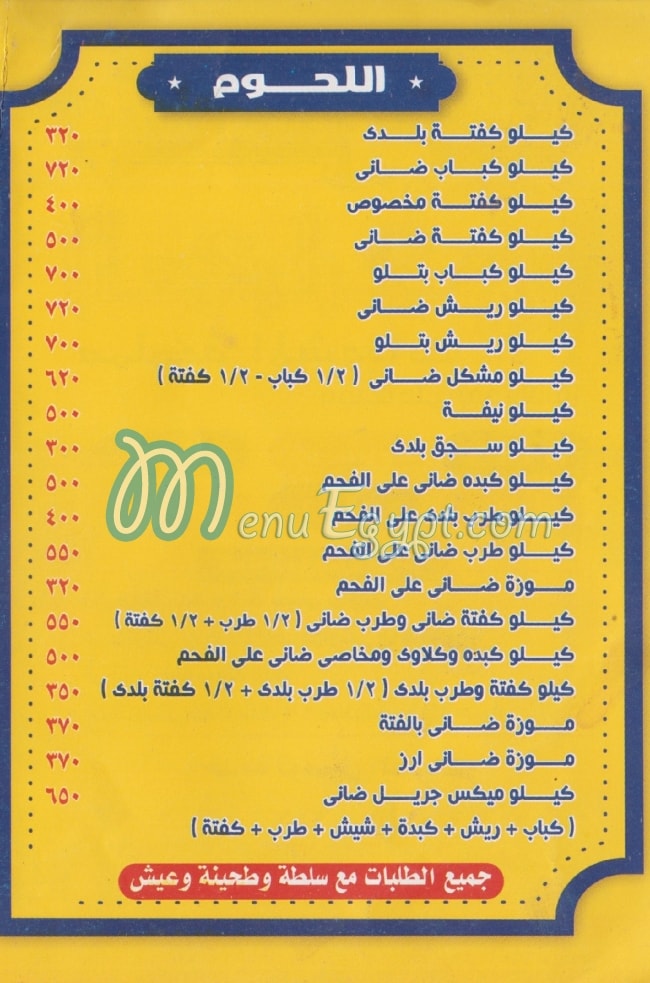 اللحوم
كيلو كفتة بلدى ٣٢٠
كيلو كباب ضانى ٧٢٠
كيلو كفتة مخصوص ٤٠٠
كيلو كفتة ضانى ٥٠٠
كيلو كباب بتلو ٧٠٠
كيلو ريش ضانى ٧٢٠
كيلو ريش بتلو ٧٠٠
كيلو مشكل ضانى ( ١/٢ كباب - ١/٢ كفتة ) ٦٢٠
كيلو نيفة ٥٠٠
كيلو سجق بلدى ٣٠٠
كيلو كبده ضانى على الفحم ٥٠٠
كيلو طرب بلدى على الفحم ٤٠٠
MenuEgypt.com
كيلو طرب ضانى على الفحم ٥٥٠
موزة ضانى على الفحم ٣٢٠
كيلو كفتة ضانى وطرب ضانى ( ١/٢ طرب + ١/٢ كفتة ) ٥٥٠
كيلو كبده وكلاوى ومخاصى ضانى على الفحم ٥٠٠
كيلو كفتة وطرب بلدى ( ١/٢ طرب بلدى + ١/٢ كفتة بلدى ) ٣٥٠
موزة ضانى بالفتة ٣٧٠
موزة ضانى ارز ٣٧٠
كيلو ميكس جريل ضانى ٦٥٠
( كباب + ريش + كبدة + شيش + طرب + كفتة )
جميع الطلبات مع سلطة وطحينة وعيش